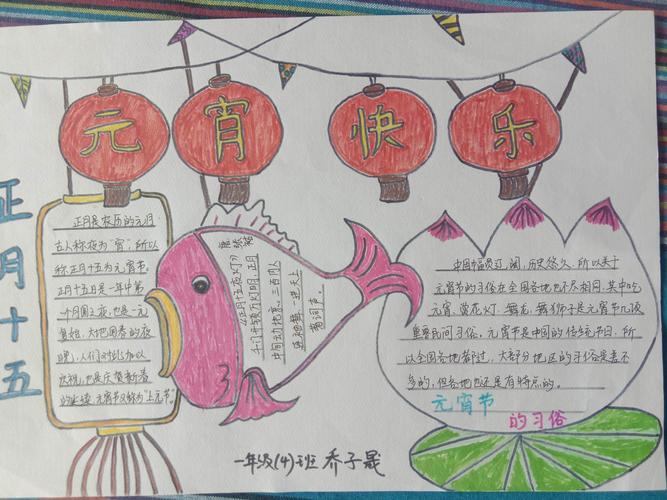 元 宵 快 乐
正月十五
正月是农历的元月
古人称夜为"宵",所以
称正月十五为元宵节。
正月十五日是一年中第
一个月圆之夜,也是一元
复始,大地回春的夜
晚,人们对此加以
庆祝,也是庆贺新春
的延续,元宵节又称为"上元节"。
《正月十五夜灯》
唐 张祜
千门开锁万灯明,正月
中旬动地京。三百内人
连袖舞,一进天上
著词声。
中国幅员辽阔,历史悠久,所以关于
元宵节的习俗在全国各地也不尽相同,其中吃
元宵、赏花灯、舞龙、舞狮子是元宵节几项
重要民间习俗。元宵节是中国的传统节日,所
以全国各地都过,大部分地区的习俗是差不
多的,但各地也还是有特点的。
元宵节
的习俗
一年级(4)班 乔子晟